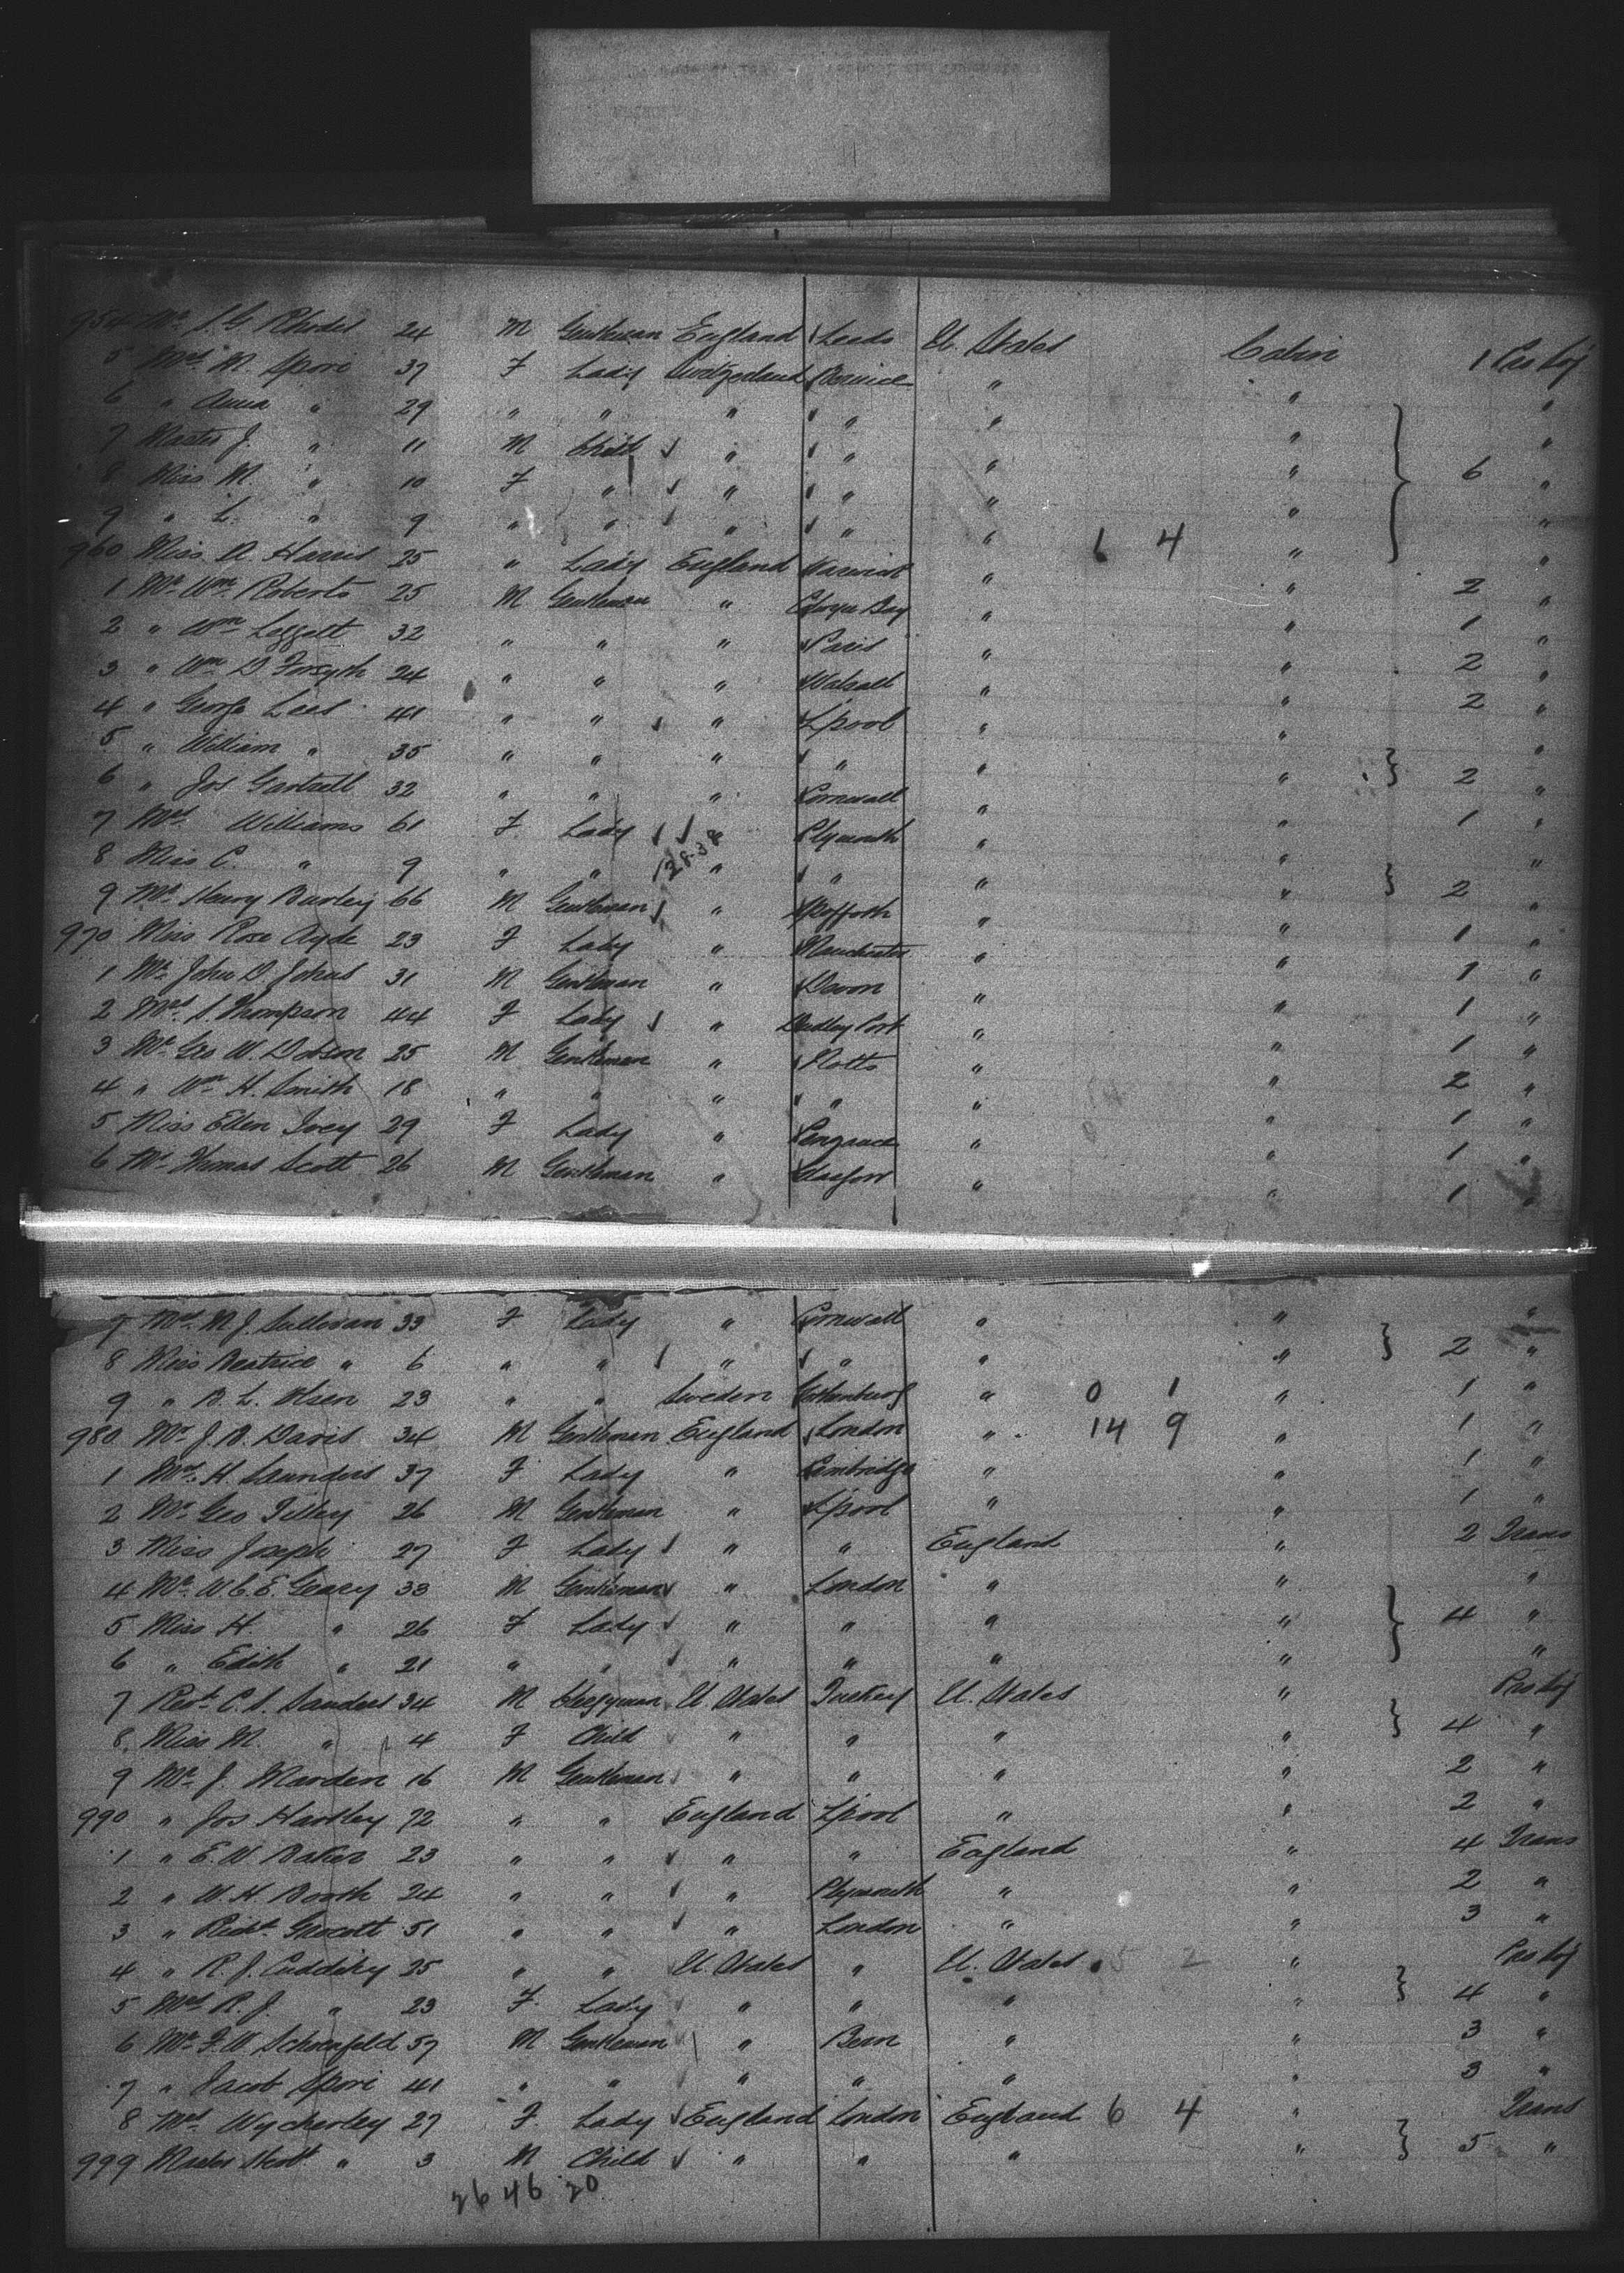 954 Mr. S. G. Rhodes 24 M Gentleman England Leeds U. States Cabin 1 Pro Soj
5 Mrs. M. Spori 37 F Lady Switzerland " " "
6 " Anna " 29 " " " " " " "
7 Master J. " 11 M Child " " " " "
8 Miss M. " 10 F " " " " " 6 "
9 " L. " 9 " " " " " " "
960 Miss A. Harris 25 " Lady England Warwick " 6 4 " 2 "
1 Mr. Wm. Roberts 25 M Gentleman " Colwyn Bay " " 1 "
2 " Wm Leggett 32 " " " Paris " " 2 "
3 " Wm D. Forsyth 24 " " " Walsall " " 2 "
4 " George Lees 41 " " " L'pool " " "
5 " William " 35 " " " " " " 2 "
6 " Jos Gartrell 32 " " " Cornwall " " 1 "
7 Mrs. Williams 61 F Lady " Plymouth " " "
8 Miss C. " 9 " " " " " " 2 "
9 Mr. Henry Burley 66 M Gentleman " Spofforth " " 1 "
970 Miss Rose Ayde 23 F Lady " Manchester " " 1 "
1 Mr. John D. Johns 31 M Gentleman " Devon " " 1 "
2 Mrs. S. Thompson 44 F Lady " Dudley Port " " 1 "
3 Mr. Geo W. Dobson 25 M Gentleman " Notts " " 2 "
4 " Wm H. Smith 18 " " " " " " 1 "
5 Miss Ellen Ivey 29 F Lady " Penzance " " 1 "
6 Mr. Thomas Scott 26 M Gentleman " Glasgow " " 1 "
7 Mrs. M. J. Sullivan 33 F Lady " Cornwall " " "
8 Miss Beatrice " 6 " " " " " " 2 "
9 " B. L. Olsen 23 " " Sweden Gothenburg " 0 1 " 1 "
980 Mr. J. B. Davis 34 M Gentleman England London " 14 9 " 1 "
1 Mrs. H. Saunders 37 F Lady " Cambridge " " 1 "
2 Mr. Geo Tilley 26 M Gentleman " L'pool " " 1 "
3 Miss Joseph 27 F Lady " " England " 2 Trans
4 Mr. W. C. E. Geary 33 M Gentleman " London " " "
5 Miss H. " 26 F Lady " " " " 4 "
6 " Edith " 21 " " " " " " "
7 Revd. C. S. Sanders 34 M Clergyman U. States Turkey U. States " Pro Soj
8 Miss M. " 4 F Child " " " " 4 "
9 Mr. J. Marden 16 M Gentleman " " " " 2 "
990 " Jos Hartley 72 " " England L'pool " " 2 "
1 " E. W. Baker 23 " " " " England " 4 Trans
2 " W. H. Booth 24 " " " Plymouth " " 2 "
3 " Richd. Grocott 51 " " " London " " 3 "
4 " R. J. Cuddihy 25 " " U. States " U. States 5 2 " Pro Soj
5 Mrs R. J. " 23 F Lady " " " " 4 "
6 Mr. F. W. Schoenfeld 57 M Gentleman " Bern " " 3 "
7 " Jacob Spori 41 " " " " " " 3 "
8 Mrs Wycherley 27 F Lady England London England 6 4 " Trans
999 Master " 3 M Child " " " " 5 "
26 46 20